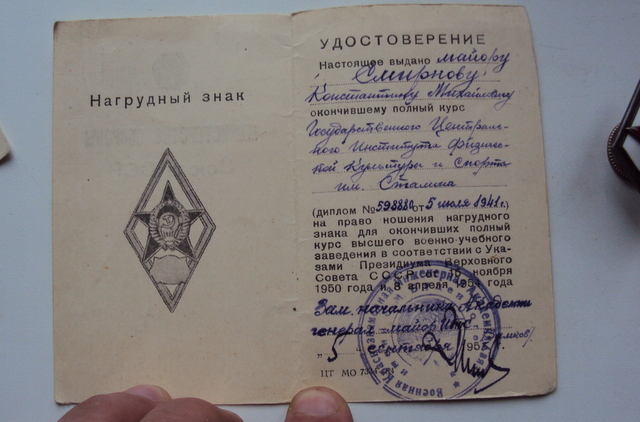 Нагрудный знак
УДОСТОВЕРЕНИЕ
Настоящее выдано майору
Смирнову
Константину Михайловичу
окончившему полный курс
Государственного Централь-
ного Института Физичес-
кой Культуры и Спорта
им. Сталина
(диплом № от 5 июля 1941 г.)
на право ношения нагрудного
знака для окончивших полный
курс высшего военно-учебного
заведения в соответствии с Ука-
зами Президиума Верховного
Совета СССР от 30 ноября
1950 года и 8 апреля года
Зам. начальника Академии
генерал-майор
"5" сентября
ЦТ МО